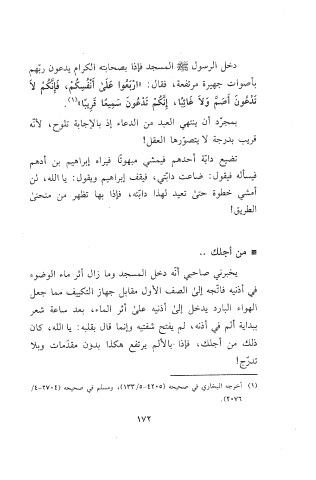 دخل الرسول ﷺ المسجد فإذا بصحابته الكرام يدعون ربّهم
بأصوات جهيرة مرتفعة، فقال: «ارْبَعُوا عَلَىٰ أَنْفُسِكُمْ، فَإِنَّكُمْ لاَ
تَدْعُونَ أَصَمَّ وَلاَ غَائِبًا، إِنَّكُمْ تَدْعُونَ سَمِيعًا قَرِيبًا»(١).
بمجرّد أن ينتهي العبد من الدعاء إذ بالإجابة تلوح، لأنّه
قريب بدرجة لا يتصوّرها العقل!
تضيع دابّة أحدهم فيمشي مبهوتًا فيراه إبراهيم بن أدهم
فيسأله فيقول: ضاعت دابّتي، فيقف إبراهيم ويقول: يا الله، لن
أمشي خطوة حتىٰ تعيد لهذا دابّته، فإذا بها تظهر من منحنىٰ
الطريق!
▪ من أجلك ..
يخبرني صاحبي أنّه دخل المسجد وما زال أثر ماء الوضوء
في أذنيه فاتّجه إلىٰ الصف الأول مقابل جهاز التكييف مما جعل
الهواء البارد يدخل إلىٰ أذنيه علىٰ أثر الماء، بعد ساعة شعر
ببداية ألم في أذنه، لم يفتح شفتيه وإنما قال بقلبه: يا الله، كان
ذلك من أجلك، فإذا بالألم يرتفع هكذا بدون مقدّمات وبلا
تدرّج!
(١) أخرجه البخاري في صحيحه (٤٢٠٥-١٣٣/٥)، ومسلم في صحيحه (٢٧٠٤-٤/
٢٠٧٦).
١٧٢